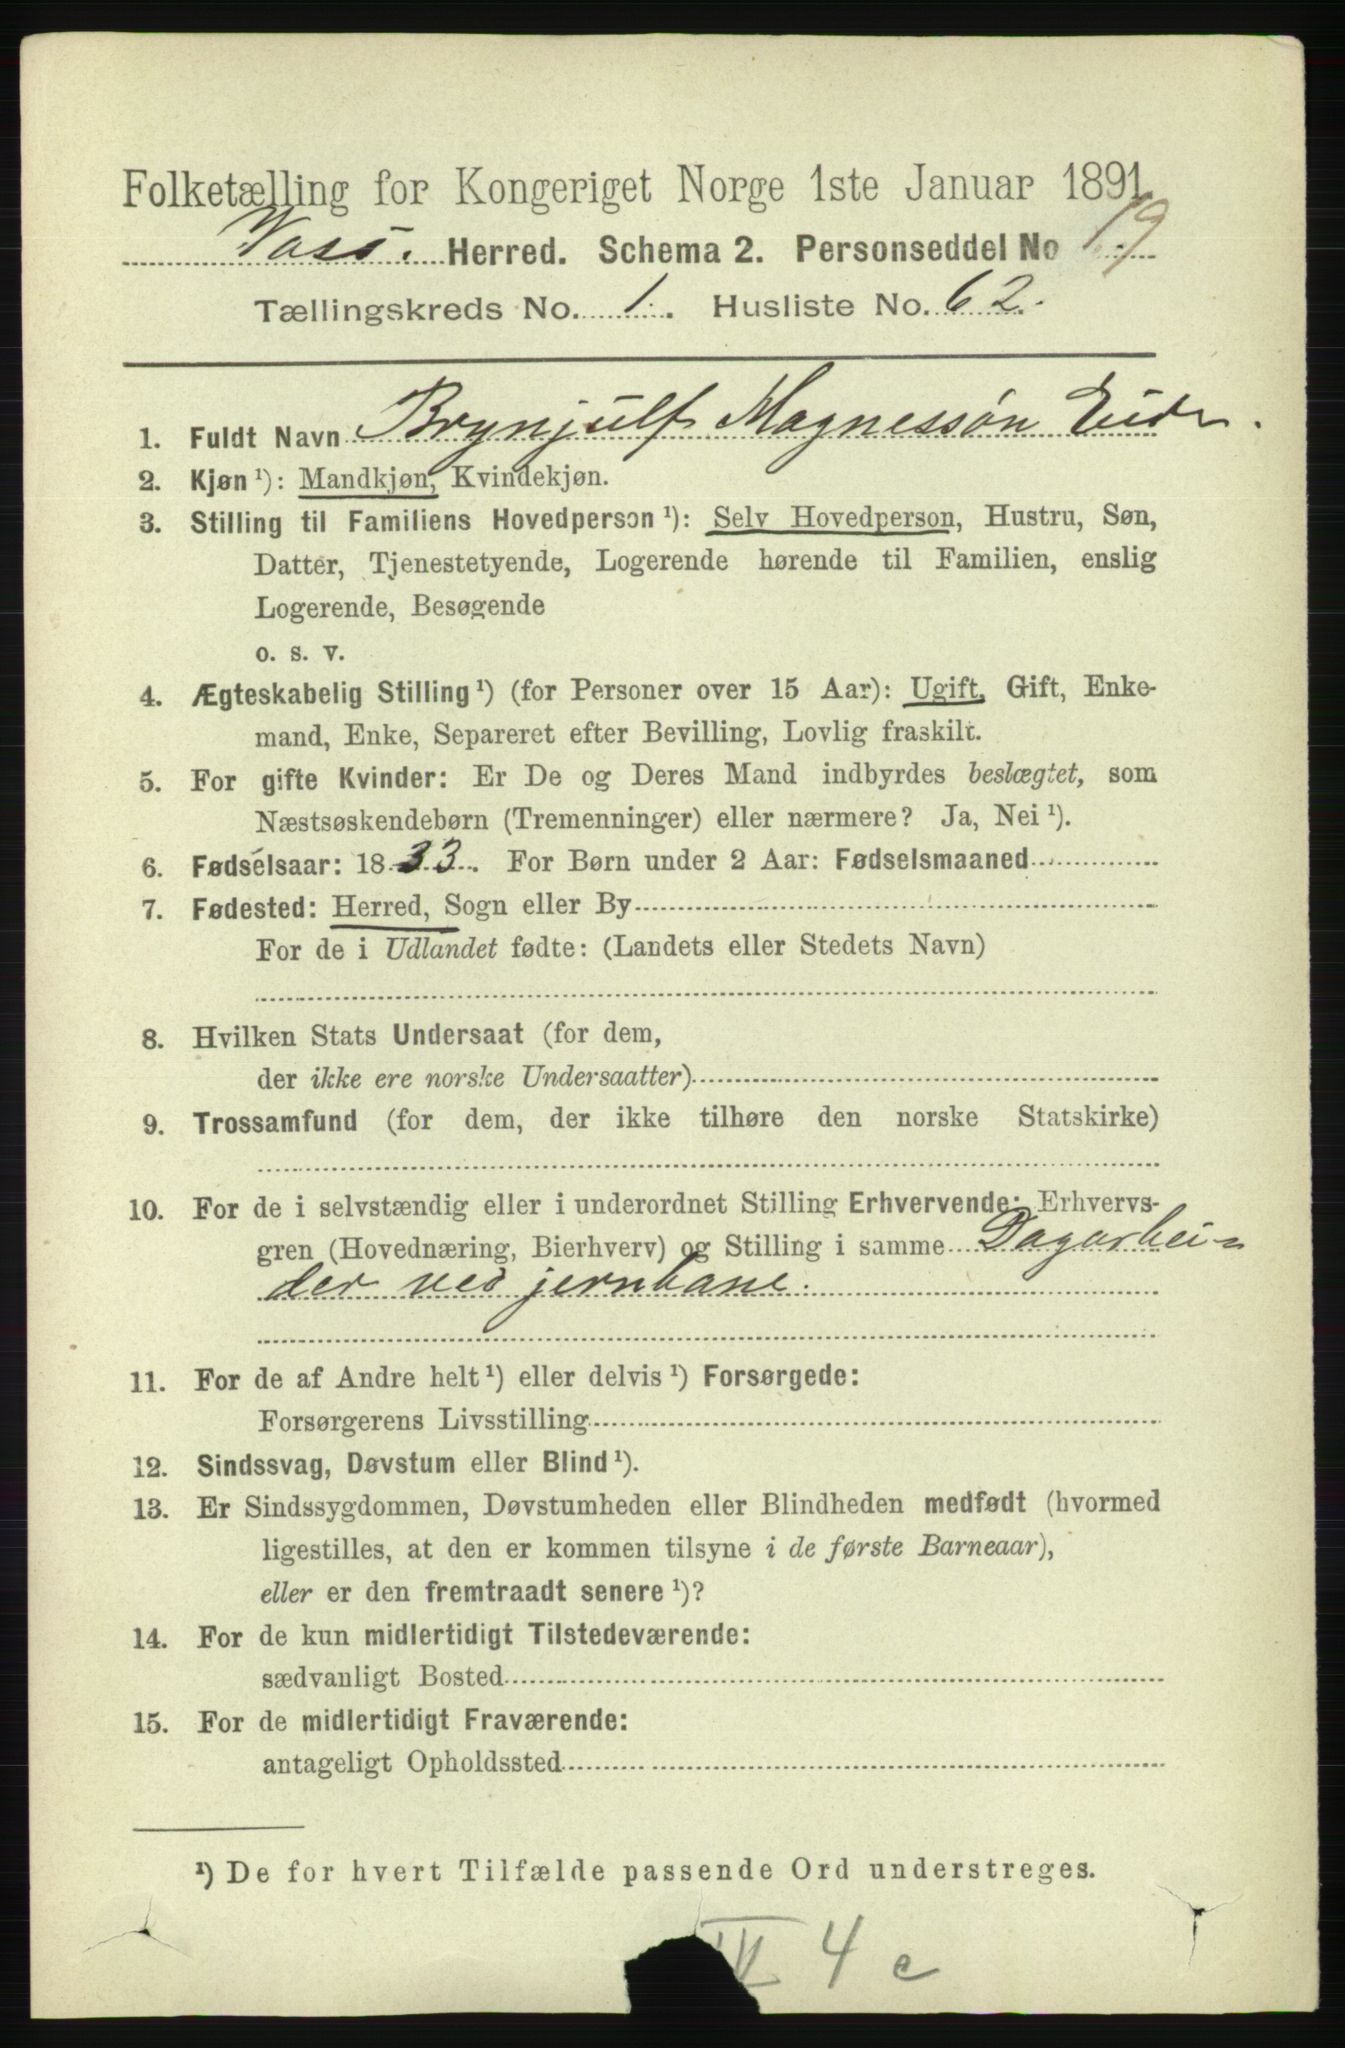 Folketælling for Kongeriget Norge 1ste Januar 1891.
Voss. Herred. Schema 2. Personseddel No 19
Tællingskreds No. 1. Husliste No. 62.
1. Fuldt Navn Brynjulf Magnessøn Eide.
2. Kjøn ¹): Mandkjøn, Kvindekjøn.
3. Stilling til Familiens Hovedperson ¹): Selv Hovedperson, Hustru, Søn,
Datter, Tjenestetyende, Logerende hørende til Familien, enslig
Logerende, Besøgende
o. s. v.
4. Ægteskabelig Stilling ¹) (for Personer over 15 Aar): Ugift, Gift, Enke-
mand, Enke, Separeret efter Bevilling, Lovlig fraskilt.
5. For gifte Kvinder: Er De og Deres Mand indbyrdes beslægtet, som
Næstsøskendebørn (Tremenninger) eller nærmere? Ja, Nei ¹).
6. Fødselsaar: 1833. For Børn under 2 Aar: Fødselsmaaned
7. Fødested: Herred, Sogn eller By
For de i Udlandet fødte: (Landets eller Stedets Navn)
8. Hvilken Stats Undersaat (for dem,
der ikke ere norske Undersaatter)
9. Trossamfund (for dem, der ikke tilhøre den norske Statskirke)
10. For de i selvstændig eller i underordnet Stilling Erhvervende: Erhvervs-
gren (Hovednæring, Bierhverv) og Stilling i samme Dagarbei-
der ved jernbane.
11. For de af Andre helt ¹) eller delvis ¹) Forsørgede:
Forsørgerens Livsstilling
12. Sindssvag, Døvstum eller Blind ¹).
13. Er Sindssygdommen, Døvstumheden eller Blindheden medfødt (hvormed
ligestilles, at den er kommen tilsyne i de første Barneaar),
eller er den fremtraadt senere ¹)?
14. For de kun midlertidigt Tilstedeværende:
sædvanligt Bosted
15. For de midlertidigt Fraværende:
antageligt Opholdssted
¹) De for hvert Tilfælde passende Ord understreges.
IV 4 c